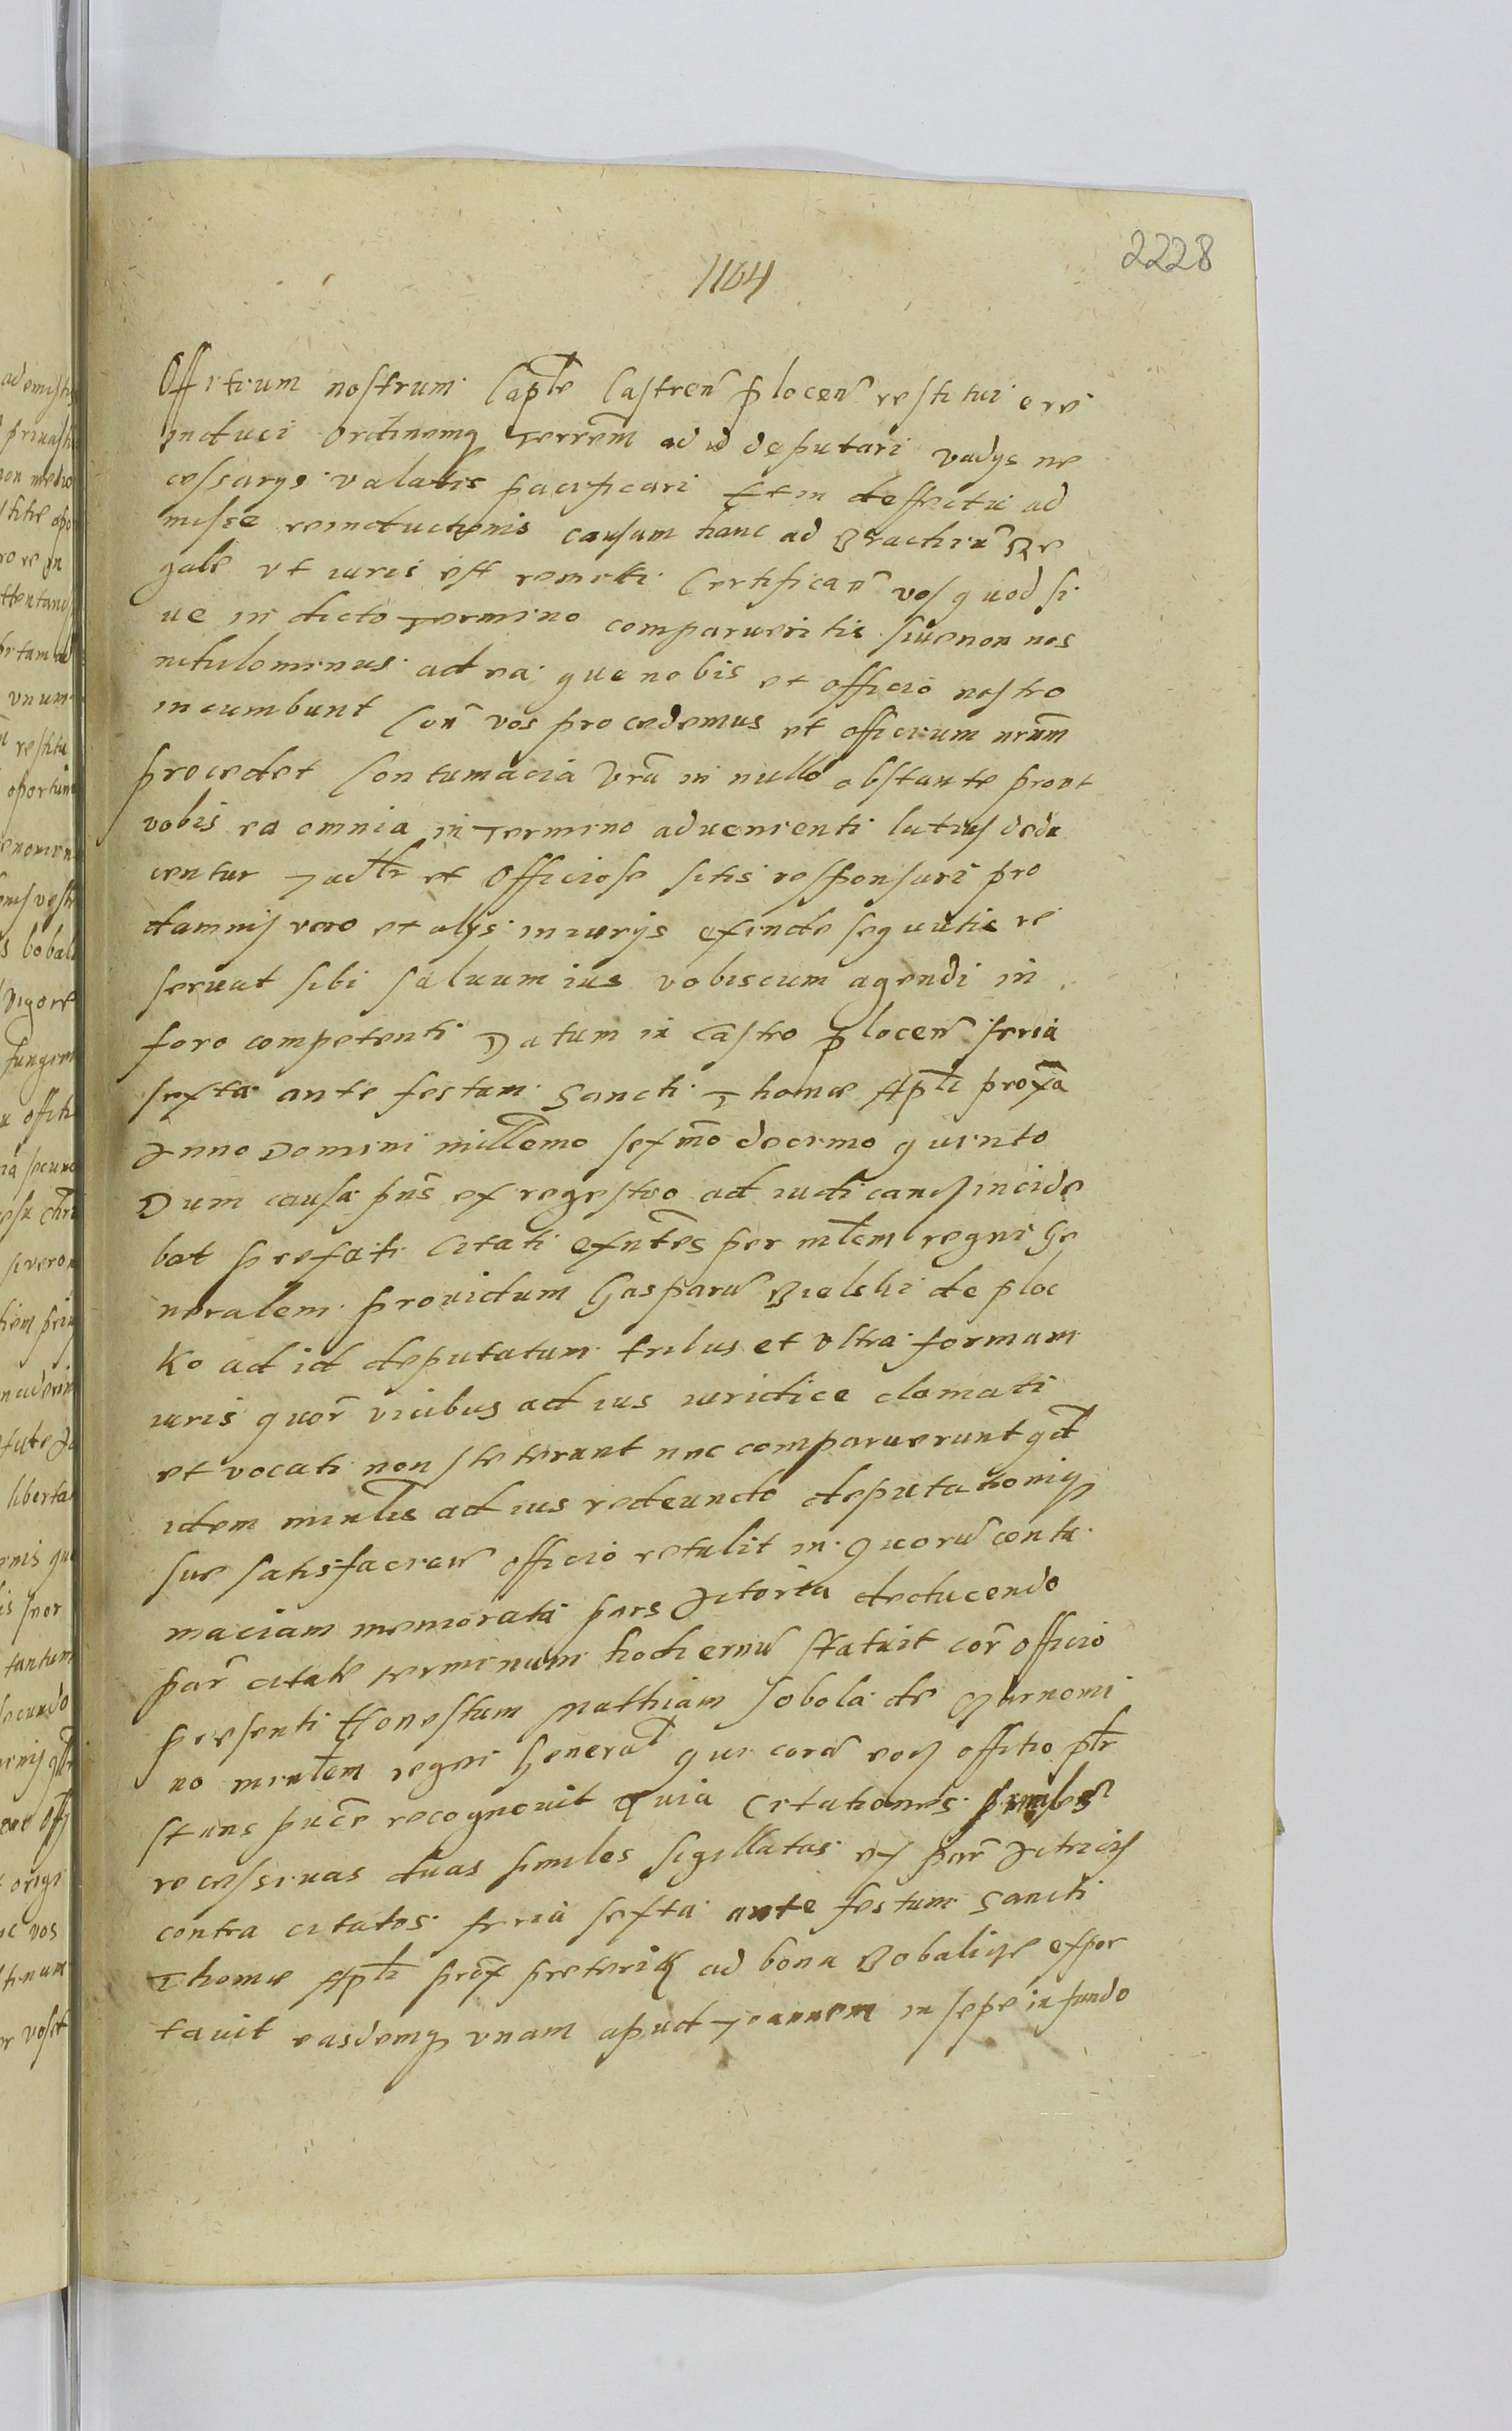 2228
1104
Officium nostrum Capłe Castren̄ plocen̄ restitui et re
induci ordinemq̃ Terrem̄ ad id deputari vadys ne
cessarys valatis pacificari Et in deffectu ad
missæ reinductionis causam hanc ad Brachiũ Re
gale vt iuris est remitti Certifican̄ vos quod si
ue in dicto Termino comparueritis siue non nos
nihilominus ad ea quæ nobis et officio nostro
incumbunt Con̄ vos procedemus et officium nrum̄
procedet Contumacia vrã in nullo obstante prout
vobis ea omnia in Termino aduenienti latius dedu
centur Iudłr et Officiose sitis responsuri pro
damnis vero et alys iniurys exinde sequutis re
seruat sibi saluum ius vobiscum agendi in
foro competenti Datum in Castro plocen̄ feria
sexta ante festum Sancti Thomæ Apłi proxã
Anno Domini milłemo sexmõ decimo quinto
Dum causa pñs ex regestro ad iudicand̃ incide
bat præfati Citati exñtes per młem regni Ge
neralem prouidum Gasparũ Bielski de ploc
ko ad id deputatum trilus et vltra formam
iuris quor̃ vicibus ad ius iuridice clamati
et vocati non steterunt nec comparuerunt qđ
idem minłis ad ius redeundo deputationiq̃
suæ satisfacien̄ officio retulit in quorũ contu
maciam memorata pars Actorea deducendo
par̃ citatæ terminum hodiernũ statuit cor̃ officio
præsenti Honestum Mathiam Sobola de
no minłem regni Generał qui corã eod̃ offitio płr
stans pucẽ recognouit Quia Citationes
recessiuas duas similes sigillatas ex par̃ Actricis
contra citatos feria sexta ante festum Sancti
Thomæ Apłi prox̃ præterit̃ ad bona Bobalicze expor
tauit easdemq̃ vnam apud Joannem in sepe in fundo